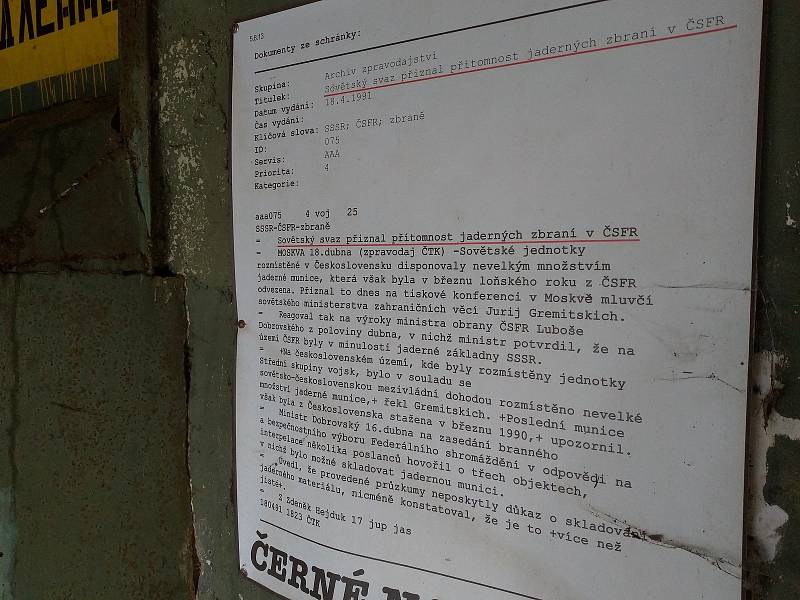 5813
Dokumenty ze schránky:
Skupina: Archiv zpravodajství
Titulek: Sovětský svaz přiznal přítomnost jaderných zbraní v ČSFR
Datum vydání: 18.4.1991
Čas vydání:
Klíčová slova: SSSR; ČSFR; zbraně
ID: 075
Servis: AAA
Priorita: 4
Kategorie:
aaa075 4 voj 25
SSSR-ČSFR-zbraně
- Sovětský svaz přiznal přítomnost jaderných zbraní v ČSFR
- MOSKVA 18.dubna (zpravodaj ČTK) -Sovětské jednotky
rozmístěné v Československu disponovaly nevelkým množstvím
jaderné munice, která však byla v březnu loňského roku z ČSFR
odvezena. Přiznal to dnes na tiskové konferenci v Moskvě mluvčí
sovětského ministerstva zahraničních věcí Jurij Gremitskich.
- Reagoval tak na výroky ministra obrany ČSFR Luboše
Dobrovského z poloviny dubna, v nichž ministr potvrdil, že na
území ČSFR byly v minulosti jaderné základny SSSR.
- +Na československém území, kde byly rozmístěny jednotky
Střední skupiny vojsk, bylo v souladu se
sovětsko-československou mezivládní dohodou rozmístěno nevelké
množství jaderné munice,+ řekl Gremitskich. +Poslední munice
však byla z Československa stažena v březnu 1990,+ upozornil.
- Ministr Dobrovský 16.dubna na zasedání branného
a bezpečnostního výboru Federálního shromáždění v odpovědi na
interpelace několika poslanců hovořil o třech objektech,
v nichž bylo možné skladovat jadernou munici.
- Uvedl, že provedené průzkumy neposkytly důkaz o skladování
jaderného materiálu, nicméně konstatoval, že je to +více než
jisté+.
- S Zdeněk Hejduk 17 jup jas
180491 1823 ČTK
ČERNÉ